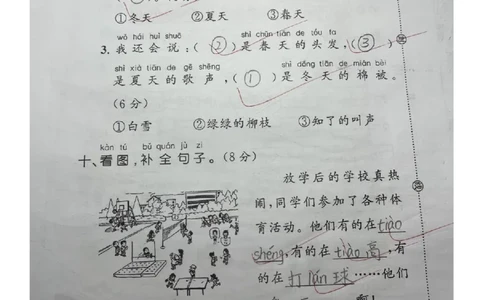 ①冬天 ②夏天 ③春天
wǒ hái huì shuō shì chūn tiān de tóu fa
3. 我还会说:( ② )是春天的头发,( ③ )
shì xià tiān de gē shēng shì dōng tiān de mián bèi
是夏天的歌声,( ① )是冬天的棉被。
(6分)
①白雪 ②绿绿的柳枝 ③知了的叫声
kàn tú bǔ quán jù zi
十、看图,补全句子。(8分)
放学后的学校真热
闹,同学们参加了各种体
育活动。他们有的在tiào
shéng,有的在tiào高,有
的在打lán球……他们
啊!